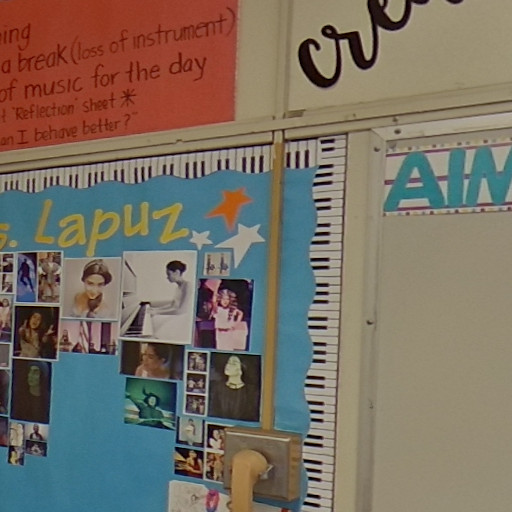 a break (loss of instrument)
of music for the day
"Reflection" sheet *
an I behave better?"
cre
s. Lapuz
AIM